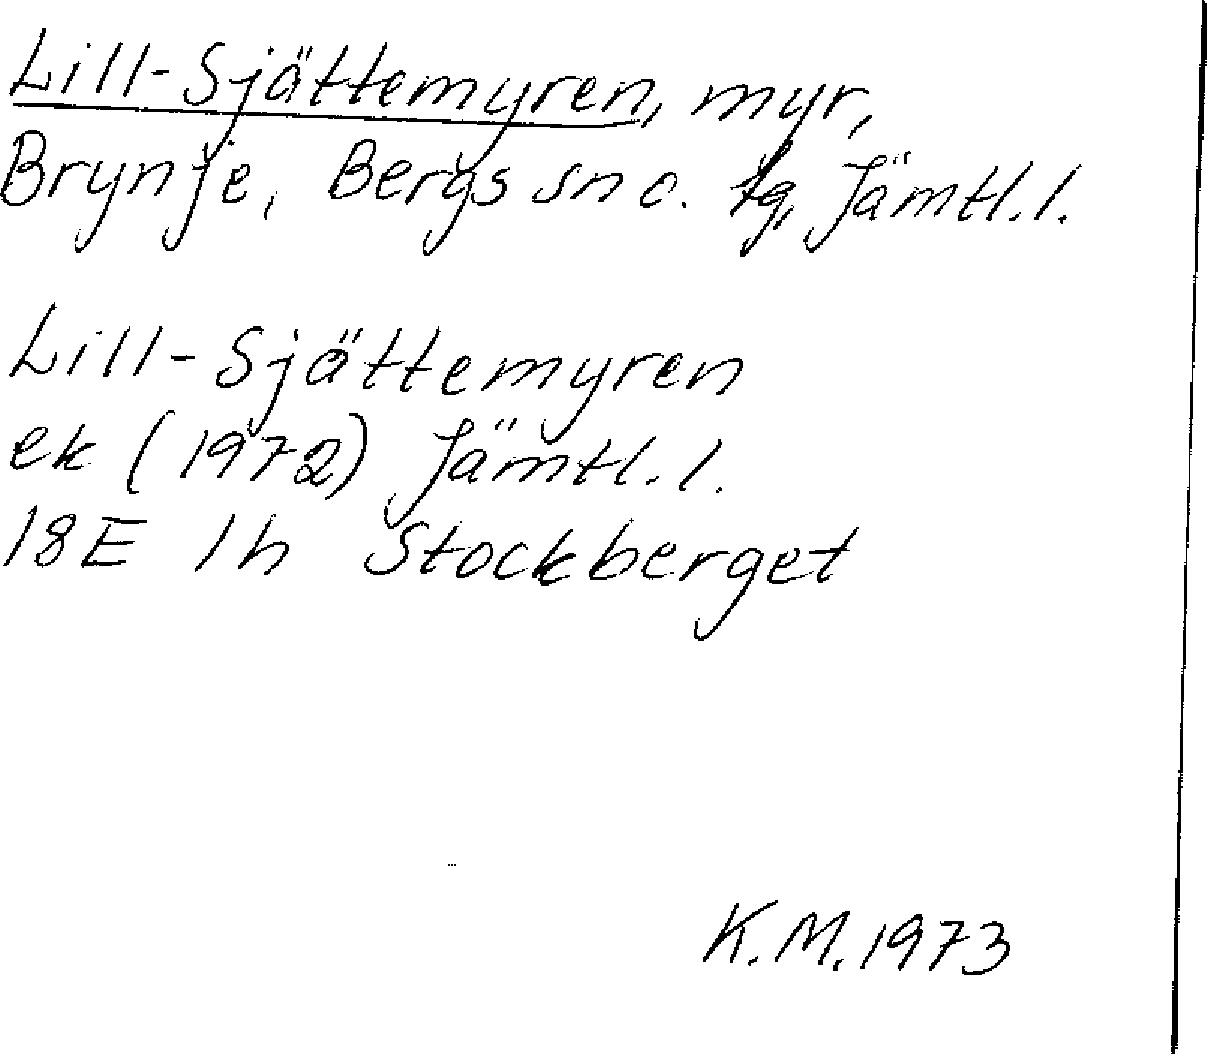 Lill-Sjättemyren, myr,
Brynje, Bergs sn o. tg, Jämtl. l.
Lill-Sjättemyren
ek (1972) Jämtl. l.
18E 1h Stockberget
K.M. 1973